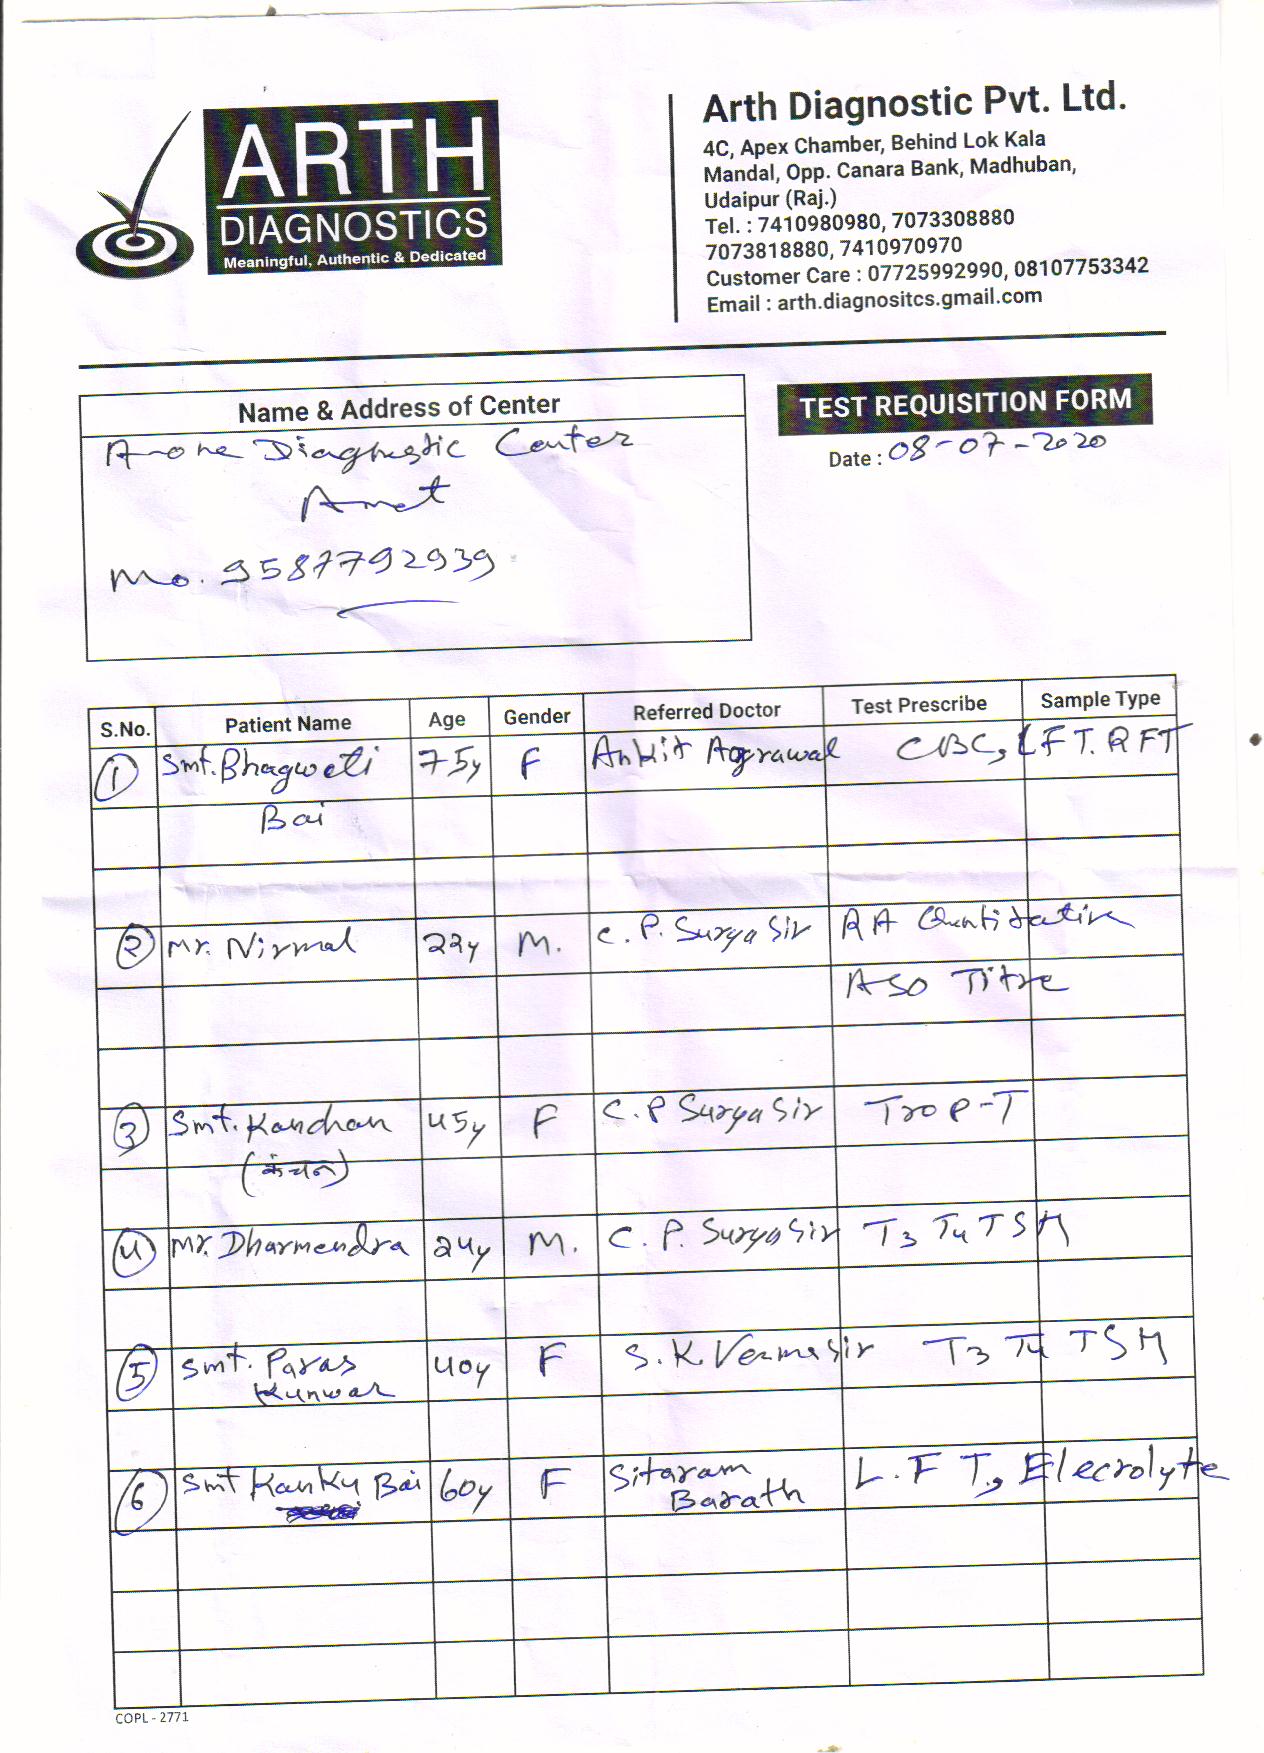 ARTH
DIAGNOSTICS
Meaningful, Authentic & Dedicated
Arth Diagnostic Pvt. Ltd.
4C, Apex Chamber, Behind Lok Kala
Mandal, Opp. Canara Bank, Madhuban,
Udaipur (Raj.)
Tel. : 7410980980, 7073308880
7073818880, 7410970970
Customer Care : 07725992990, 08107753342
Email : arth.diagnositcs.gmail.com
Name & Address of Center
A-one Diagnostic Center
Amet
Mo. 9587792939
TEST REQUISITION FORM
Date : 08-07-2020
S.No. Patient Name Age Gender Referred Doctor Test Prescribe Sample Type
1 Smt. Bhagweti 75y F Ankit Agrawal CBC, LFT. RFT
Bai
2 Mr. Nirmal 22y M. C. P. Surya Sir RA Quantitative
ASO Titre
3 Smt. Kanchan 45y F C. P Surya Sir Trop-T
(कंचन)
4 Mr. Dharmendra 24y M. C. P. Surya Sir T3 T4 TSH
5 Smt. Paras 40y F S. K. Verma Sir T3 T4 TSH
Kunwar
6 Smt Kanku Bai 60y F Sitaram L.F T., Elecrolyte
Barath
COPL - 2771